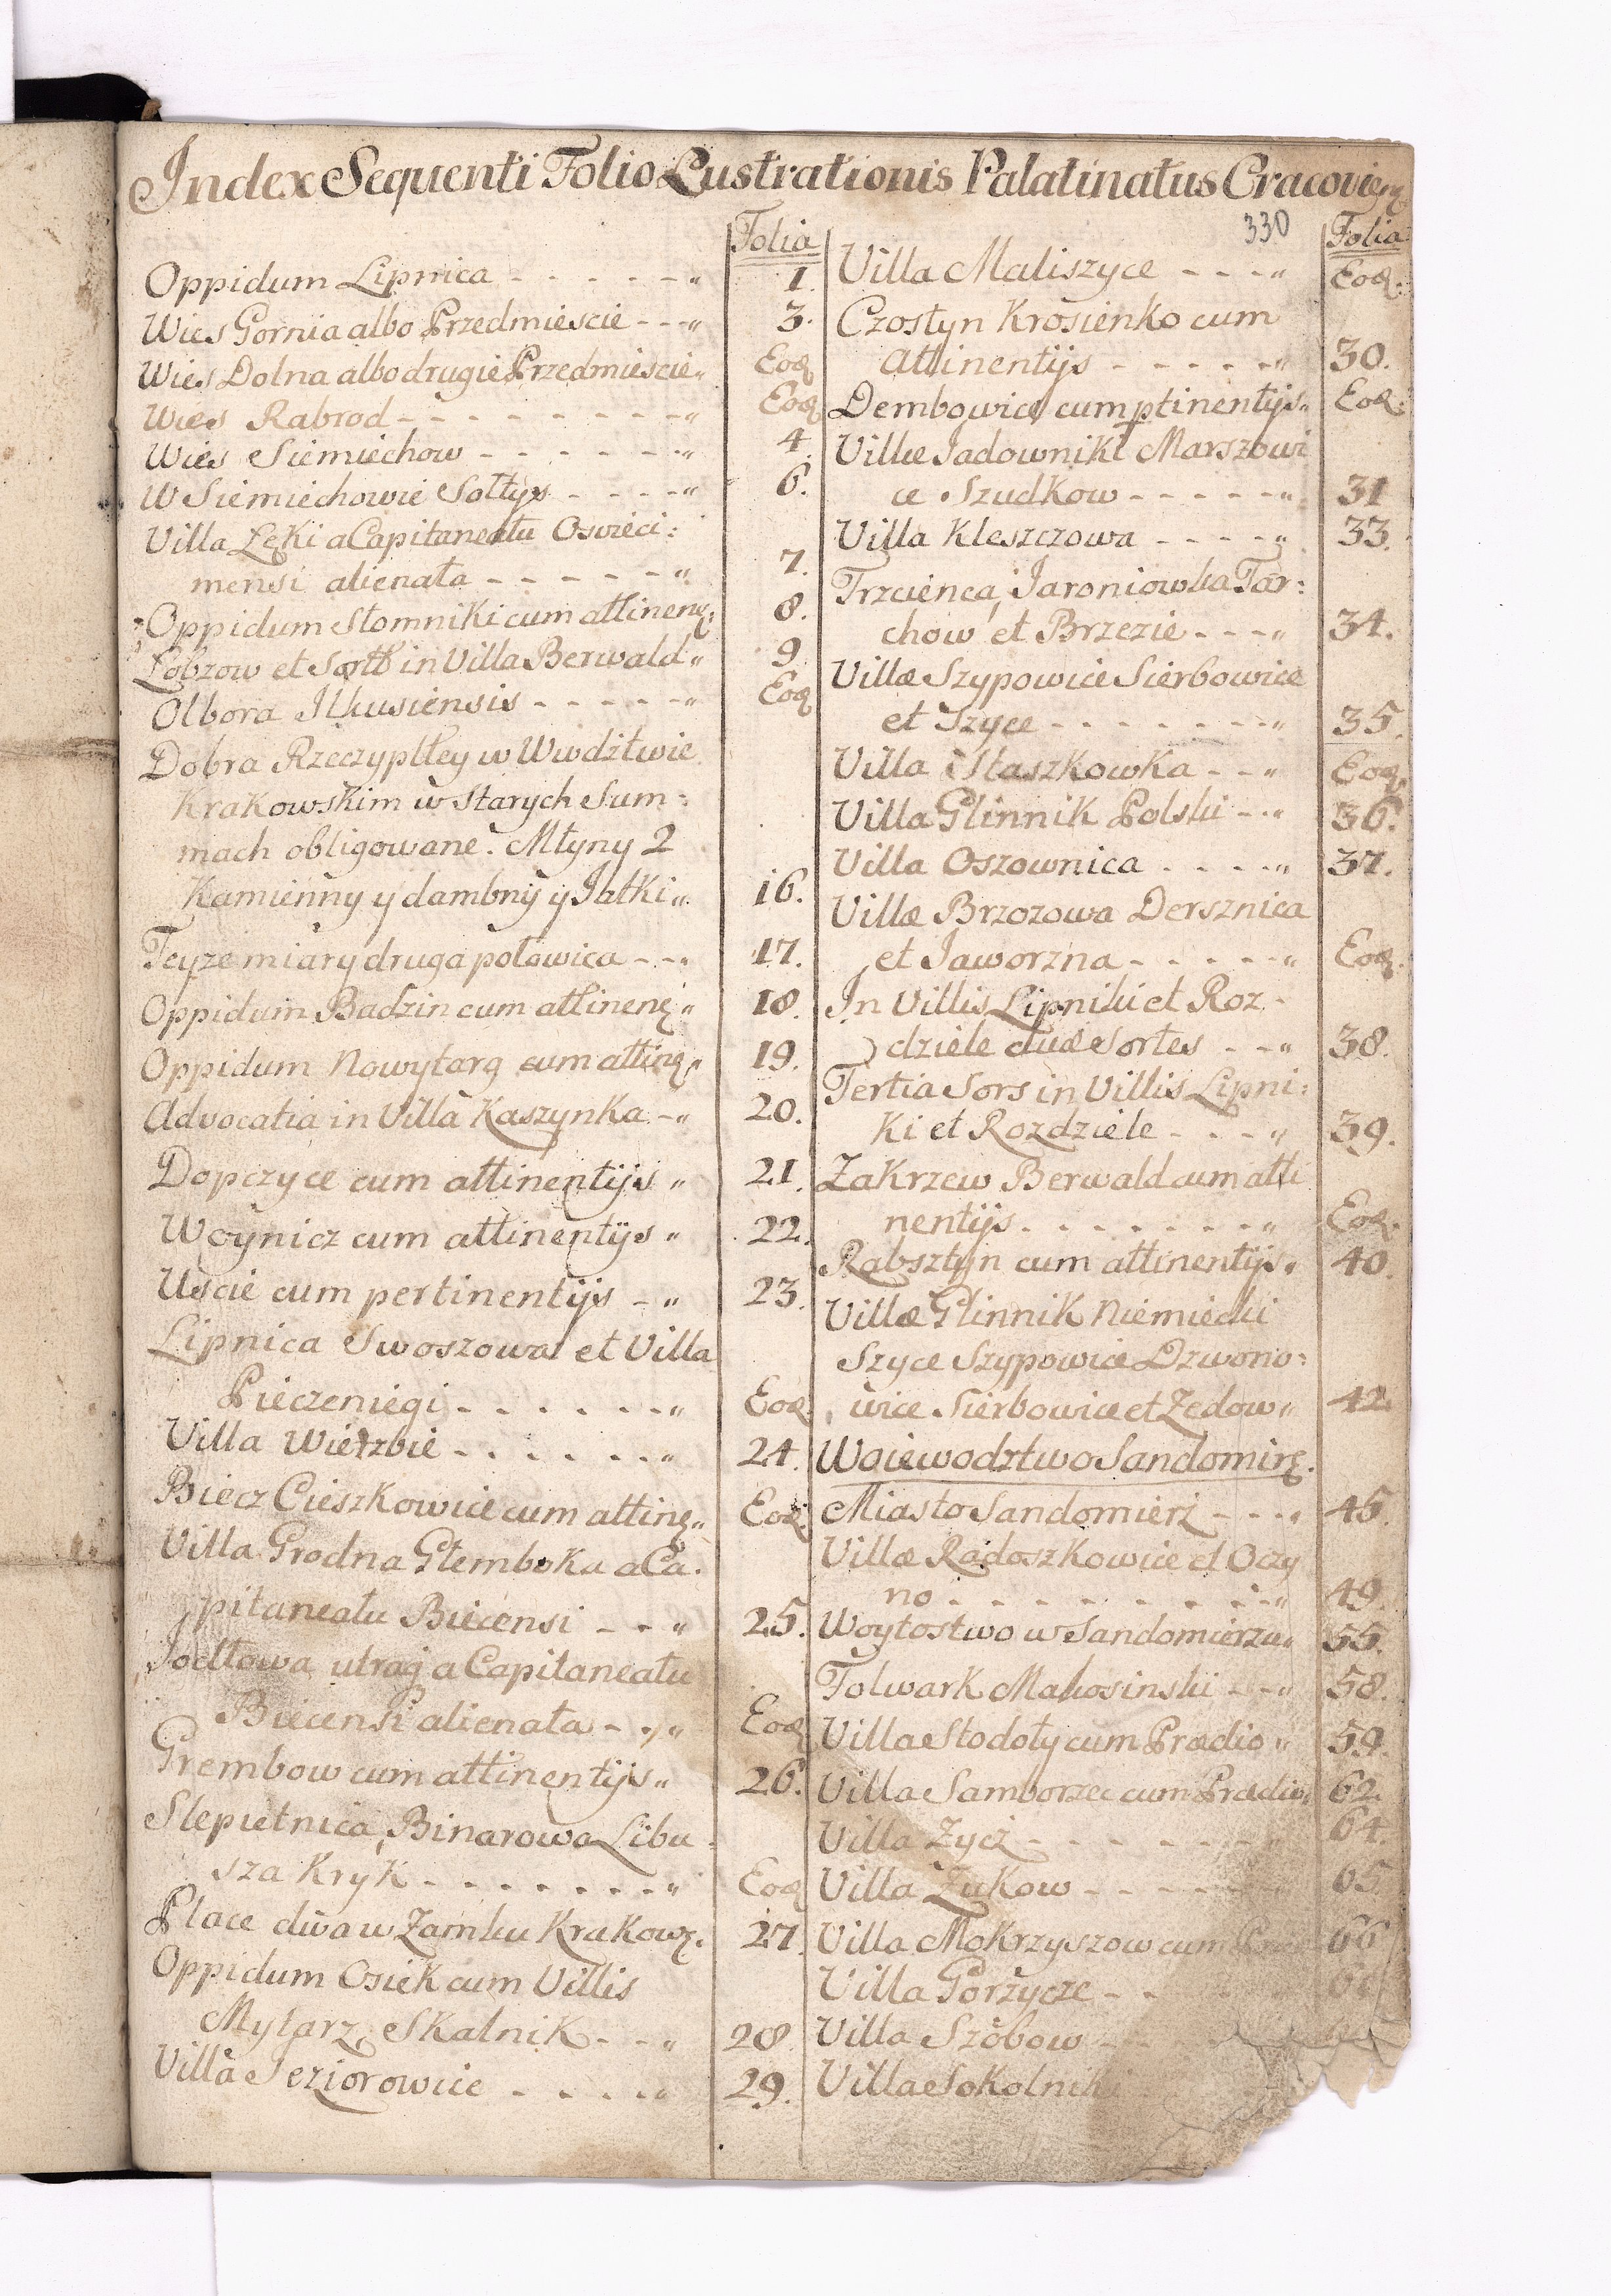 Index Sequenti Folio Lustrationis Palatinatus Cracovieņ
330
Folia
Oppidum Lipnica - - - - - - „ 1.
Wies Gornia albo Przedmiescie - - - „ 3.
Wies Dolna albo drugie Przedmiescie „ Eoꝗ
Wies Rabrod - - - - - - - - - „ Eoꝗ
Wies Siemiechow - - - - - - - „ 4.
W Siemiechowie Sołtys - - - - „ 6.
Villa Lęki a Capitaneatu Oswieci:
mensi alienata - - - - - - „ 7.
Oppidum Słomniki cum attinenę: 8.
Łobzow et Sortb in Villa Berwald „ 9
Olbora Ilkusiensis - - - - - „ Eoꝗ
Dobra Rzeczyptłey w Wwdztwie
Krakowskim w starych Sum-
mach obligowane. Młyny 2
Kamienny y dambny y Jatki „ 16.
Teyze miary druga połowica - - „ 17.
Oppidum Badzin cum attinenę „ 18.
Oppidum Nowytarg cum attinę „ 19.
Advocatia in Villa Kaszynka - „ 20.
Dopczyce cum attinentijs „ 21.
Woynicz cum attinentijs „ 22.
Uscie cum pertinentijs - „ 23.
Lipnica Swoszowa et Villa
Pieczeniegi - - - - - - - „ Eoꝗ.
Villa Wierzbie - - - - - - - „ 24.
Biecz Cieszkowice cum attinę „ Eoꝗ.
Villa Grodna Głemboka a Ca-
pitaneatu Biecensi - - „ 25.
Jodłowa utraq a Capitaneatu
Biecensi alienata - - „ Eoꝗ
Grembow cum attinentijs „ 26.
Slepietnica, Binarowa Libu-
sza Kryk - - - - - - - - „ Eoꝗ
Place dwa w Zamku Krakowę. 27.
Oppidum Osiek cum Villis
Mytarz, Skalnik - - - „ 28.
Villa Jeziorowice - - - - - „ 29.
Folia
Villa Maliszyce - - - „ Eoꝗ.
Czostyn Krosienko cum
Attinentijs - - - - - „ 30.
Dembowice cum ptinentijs „ Eoꝗ.
Villæ Jadowniki Marszowi
ce Szudkow - - - - - „ 31
Villa Kleszczowa - - - - „ 33.
Trzcienca, Jaroniowka Tar:
chow et Brzezie - - - „ 34.
Villæ Szypowice Sierbowice
et Szyce - - - - - - - „ 35.
Villa Staszkowka - - „ Eoꝗ.
Villa Glinnik Polski - - „ 36.
Villa Oszownica - - - - „ 37.
Villæ Brzozowa Dersznica
et Jaworzna - - - - - „ Eoꝗ.
In Villis Lipniki et Roz-
dziele duæ sortes - - „ 38.
Tertia Sors in Villis Lipni:
Ki et Rozdziele - - - „ 39.
Zakrzew Berwald cum atti
nentijs - - - - - - - - „ Eoꝗ.
Rabsztyn cum attinentijs „ 40.
Villæ Glinnik Niemiecki
Szyce Szypowice Dzwono:
wice Sierbowice et Zedow „ 42.
Woiewodztwo Sandomirę.
Miasto Sandomierz - - - „ 45.
Villæ Radoszkowice et Oczy
no - - - - - - - - - „ 49.
Woytostwo w Sandomierzu „ 55.
Folwark Makosinski - - „ 58.
Villa Stodoły cum Prædio „ 59.
Villa Samborzec cum Prædio „ 62.
Villa Zycz - - - - - - - „ 64.
Villa Zukow - - - - - 65.
Villa Mokrzyszow cum 66
Villa Gorzycze - -
Villa Szobow - -
Villa Sokolniki